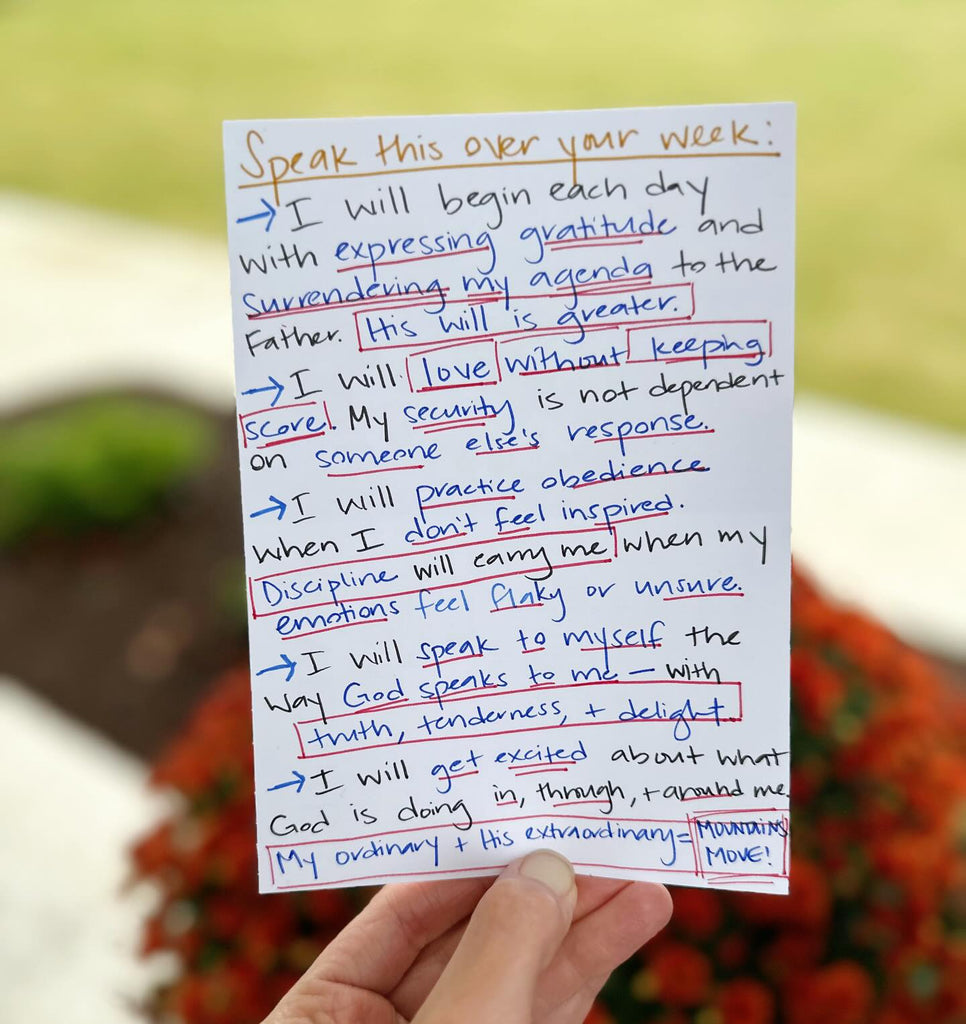 Speak this over your week:
→ I will begin each day
with expressing gratitude and
surrendering my agenda to the
Father. His will is greater.
→ I will love without keeping
score. My security is not dependent
on someone else's response.
→ I will practice obedience
when I don't feel inspired.
Discipline will carry me when my
emotions feel flaky or unsure.
→ I will speak to myself the
way God speaks to me — with
truth, tenderness, + delight.
→ I will get excited about what
God is doing in, through, + around me.
My ordinary + His extraordinary = MOUNTAINS
MOVE!